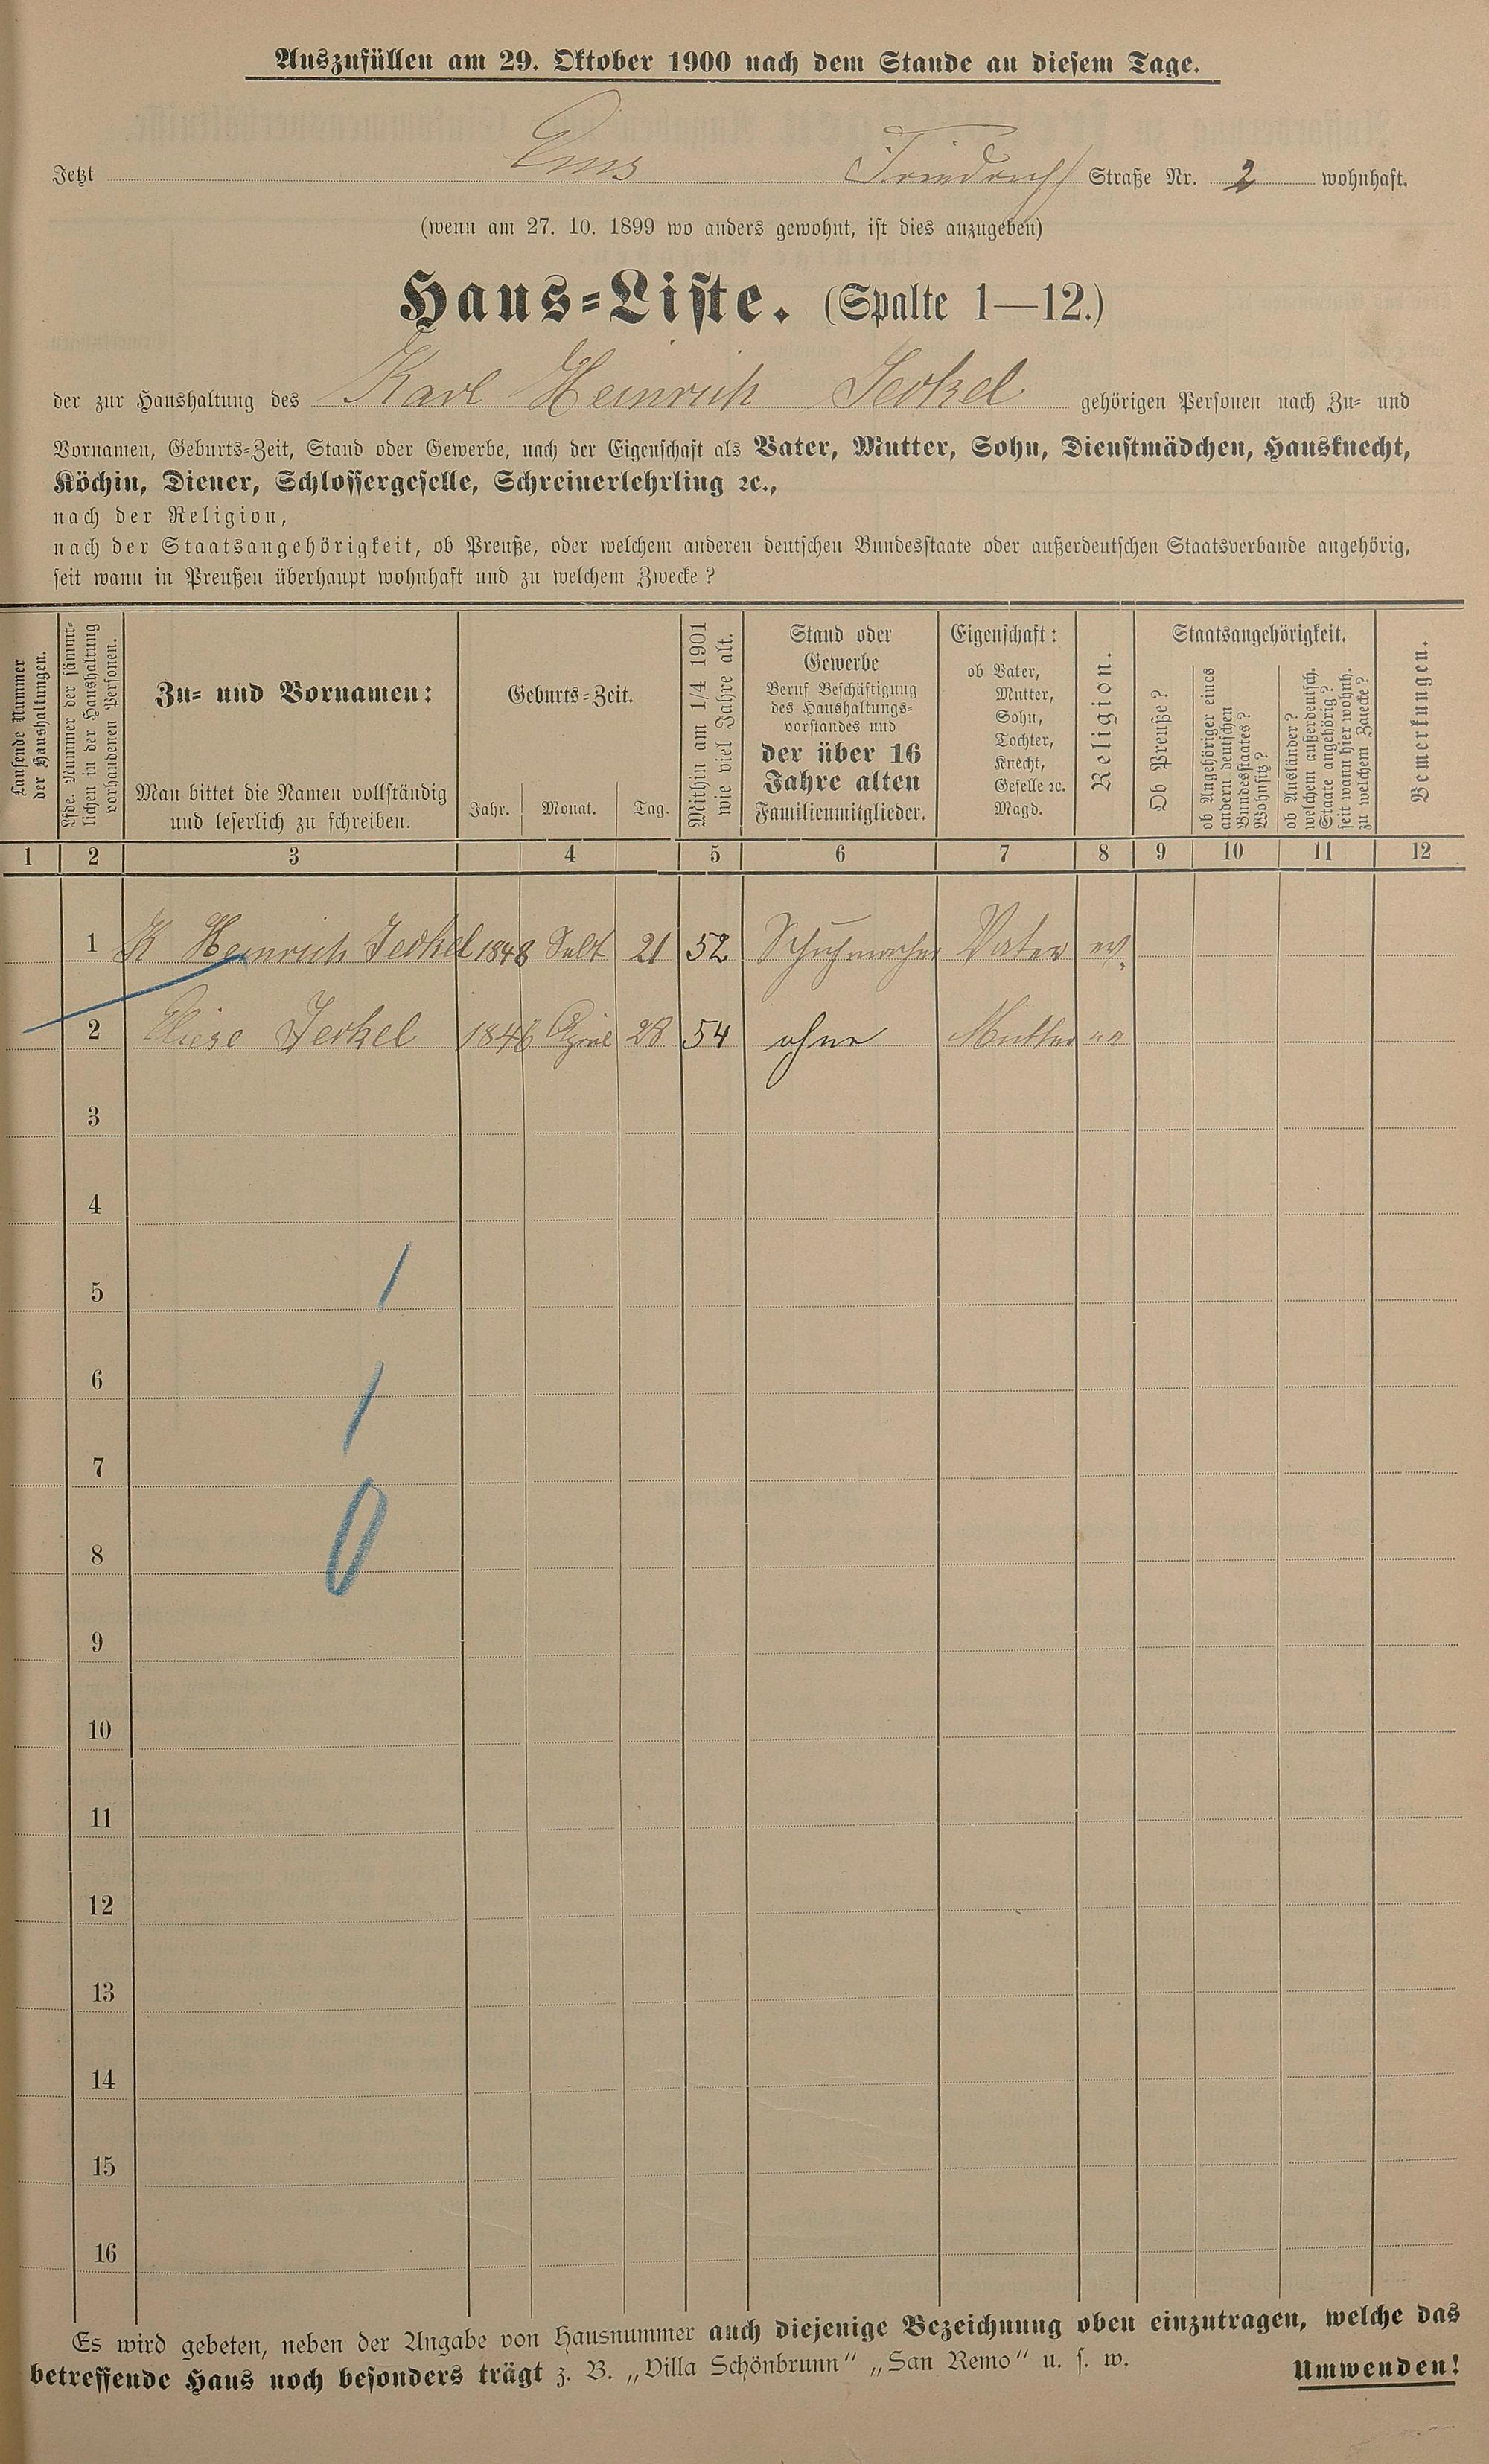 Auszufüllen am 29. Oktober 1900 nach dem Stande an diesem Tage.
Jetzt Ems Friedrich Straße Nr. 2 wohnhaft.
(wenn am 27. 10. 1899 wo anders gewohnt, ist dies anzugeben)
Haus-Liste. (Spalte 1—12.)
der zur Haushaltung des Karl Heinrich Jeckel gehörigen Personen nach Zu- und
Vornamen, Geburts-Zeit, Stand oder Gewerbe, nach der Eigenschaft als Vater, Mutter, Sohn, Dienstmädchen, Hausknecht,
Köchin, Diener, Schlossergeselle, Schreinerlehrling ꝛc.,
nach der Religion,
nach der Staatsangehörigkeit, ob Preuße, oder welchem anderen deutschen Bundesstaate oder außerdeutschen Staatsverbande angehörig,
seit wann in Preußen überhaupt wohnhaft und zu welchem Zwecke?
Laufende Nummer
der Haushaltungen.
Lfde. Nummer der sämmt-
lichen in der Haushaltung
vorhandenen Personen.
Zu- und Vornamen:
Man bittet die Namen vollständig
und leserlich zu schreiben.
Geburts-Zeit.
Jahr. Monat. Tag.
Mithin am 1/4 1901
wie viel Jahre alt.
Stand oder
Gewerbe
Beruf Beschäftigung
des Haushaltungs-
vorstandes und
der über 16
Jahre alten
Familienmitglieder.
Eigenschaft:
ob Vater,
Mutter,
Sohn,
Tochter,
Knecht,
Geselle ꝛc.
Magd.
Religion.
Staatsangehörigkeit.
Ob Preuße?
ob Angehöriger eines
andern deutschen
Bundesstaates?
Wohnsitz?
ob Ausländer?
welchem außerdeutsch.
Staate angehörig?
seit wann hier wohnh.
zu welchem Zwecke?
Bemerkungen.
1 2 3 4 5 6 7 8 9 10 11 12
1 K Heinrich Jeckel 1848 Sebt 21 52 Schuhmacher Vater ev.
2 Eliese Jeckel 1846 April 28 54 ohne Mutter " "
3
4
5
6
7
8
9
10
11
12
13
14
15
16
Es wird gebeten, neben der Angabe von Hausnummer auch diejenige Bezeichnung oben einzutragen, welche das
betreffende Haus noch besonders trägt z. B. „Villa Schönbrunn“ „San Remo“ u. s. w. Umwenden!